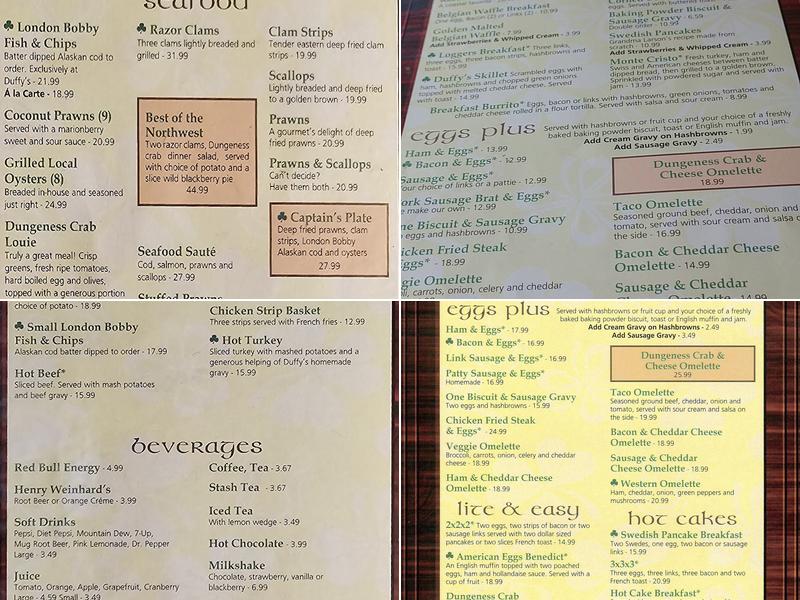 seafood
☘ London Bobby
Fish & Chips
Batter dipped Alaskan cod to
order. Exclusively at
Duffy's - 21.99
Á la Carte - 18.99
Coconut Prawns (9)
Served with a marionberry
sweet and sour sauce - 20.99
Grilled Local
Oysters (8)
Breaded in-house and seasoned
just right - 24.99
Dungeness Crab
Louie
Truly a great meal! Crisp
greens, fresh ripe tomatoes,
hard boiled egg and olives,
topped with a generous portion
☘ Razor Clams
Three clams lightly breaded and
grilled - 31.99
Best of the
Northwest
Two razor clams, Dungeness
crab dinner salad, served
with choice of potato and a
slice wild blackberry pie
44.99
Seafood Sauté
Cod, salmon, prawns and
scallops - 27.99
Stuffed Prawns
Clam Strips
Tender eastern deep fried clam
strips - 19.99
Scallops
Lightly breaded and deep fried
to a golden brown - 19.99
Prawns
A gourmet's delight of deep
fried prawns - 20.99
Prawns & Scallops
Can't decide?
Have them both - 20.99
☘ Captain's Plate
Deep fried prawns, clam
strips, London Bobby
Alaskan cod and oysters
27.99
Belgian Waffle Breakfast
One egg, Bacon (2) or Links (2) - 10.99
Golden Malted
Belgian Waffle - 7.99
Add Strawberries & Whipped Cream - 3.99
☘ Loggers Breakfast* Three links,
three eggs, three bacon strips, hashbrowns and
toast - 15.99
☘ Duffy's Skillet Scrambled eggs with
ham, hashbrowns and chopped green onions
topped with melted cheddar cheese. Served
with toast - 14.99
Breakfast Burrito* Eggs, bacon or links with hashbrowns, green onions, tomatoes and
cheddar cheese rolled in a flour tortilla. Served with salsa and sour cream - 8.99
Baking Powder Biscuit &
Sausage Gravy - 6.59
Double order - 10.99
Swedish Pancakes
Grandma Larson's recipe made from
scratch - 10.99
Add Strawberries & Whipped Cream - 3.99
Monte Cristo* Fresh turkey, ham and
Swiss and American cheeses between batter
dipped bread, then grilled to a golden brown.
Sprinkled with powdered sugar and served with
jam - 13.99
eggs plus
Served with hashbrowns or fruit cup and your choice of a freshly
baked baking powder biscuit, toast or English muffin and jam.
Add Cream Gravy on Hashbrowns - 1.99
Add Sausage Gravy - 2.49
Ham & Eggs* - 13.99
☘ Bacon & Eggs* - 12.99
Sausage & Eggs*
Your choice of links or a pattie - 12.99
Pork Sausage Brat & Eggs*
make our own - 12.99
One Biscuit & Sausage Gravy
eggs and hashbrowns - 10.99
Chicken Fried Steak
Eggs* - 18.99
Veggie Omelette
carrots, onion, celery and cheddar
Dungeness Crab &
Cheese Omelette
18.99
Taco Omelette
Seasoned ground beef, cheddar, onion and
tomato, served with sour cream and salsa on
the side - 16.99
Bacon & Cheddar Cheese
Omelette - 14.99
Sausage & Cheddar
choice of potato - 18.99
☘ Small London Bobby
Fish & Chips
Alaskan cod batter dipped to order - 17.99
Hot Beef*
Sliced beef. Served with mash potatoes
and beef gravy - 15.99
Chicken Strip Basket
Three strips served with French fries - 12.99
☘ Hot Turkey
Sliced turkey with mashed potatoes and a
generous helping of Duffy's homemade
gravy - 15.99
beverages
Red Bull Energy - 4.99
Henry Weinhard's
Root Beer or Orange Créme - 3.99
Soft Drinks
Pepsi, Diet Pepsi, Mountain Dew, 7-Up,
Mug Root Beer, Pink Lemonade, Dr. Pepper
Large - 3.49
Juice
Tomato, Orange, Apple, Grapefruit, Cranberry
Large - 4.59 Small - 3.49
Coffee, Tea - 3.67
Stash Tea - 3.67
Iced Tea
With lemon wedge - 3.49
Hot Chocolate - 3.99
Milkshake
Chocolate, strawberry, vanilla or
blackberry - 6.99
eggs plus
Served with hashbrowns or fruit cup and your choice of a freshly
baked baking powder biscuit, toast or English muffin and jam.
Add Cream Gravy on Hashbrowns - 2.49
Add Sausage Gravy - 3.49
Ham & Eggs* - 17.99
☘ Bacon & Eggs* - 16.99
Link Sausage & Eggs* - 16.99
Patty Sausage & Eggs*
Homemade - 16.99
One Biscuit & Sausage Gravy
Two eggs and hashbrowns - 15.99
Chicken Fried Steak
& Eggs* - 24.99
Veggie Omelette
Broccoli, carrots, onion, celery and cheddar
cheese - 18.99
Ham & Cheddar Cheese
Omelette - 18.99
Dungeness Crab &
Cheese Omelette
25.99
Taco Omelette
Seasoned ground beef, cheddar, onion and
tomato, served with sour cream and salsa on
the side - 19.99
Bacon & Cheddar Cheese
Omelette - 18.99
Sausage & Cheddar
Cheese Omelette - 18.99
☘ Western Omelette
Ham, cheddar, onion, green peppers and
mushrooms - 20.99
lite & easy
2x2x2* Two eggs, two strips of bacon or two
sausage links served with two dollar sized
pancakes or two slices French toast - 14.99
☘ American Eggs Benedict*
An English muffin topped with two poached
eggs, ham and hollandaise sauce. Served with a
cup of fruit - 18.99
Dungeness Crab
hot cakes
☘ Swedish Pancake Breakfast
Two Swedes, one egg, two bacon or sausage
links - 15.99
3x3x3*
Three eggs, three links, three bacon and two
French toast - 20.99
Hot Cake Breakfast*